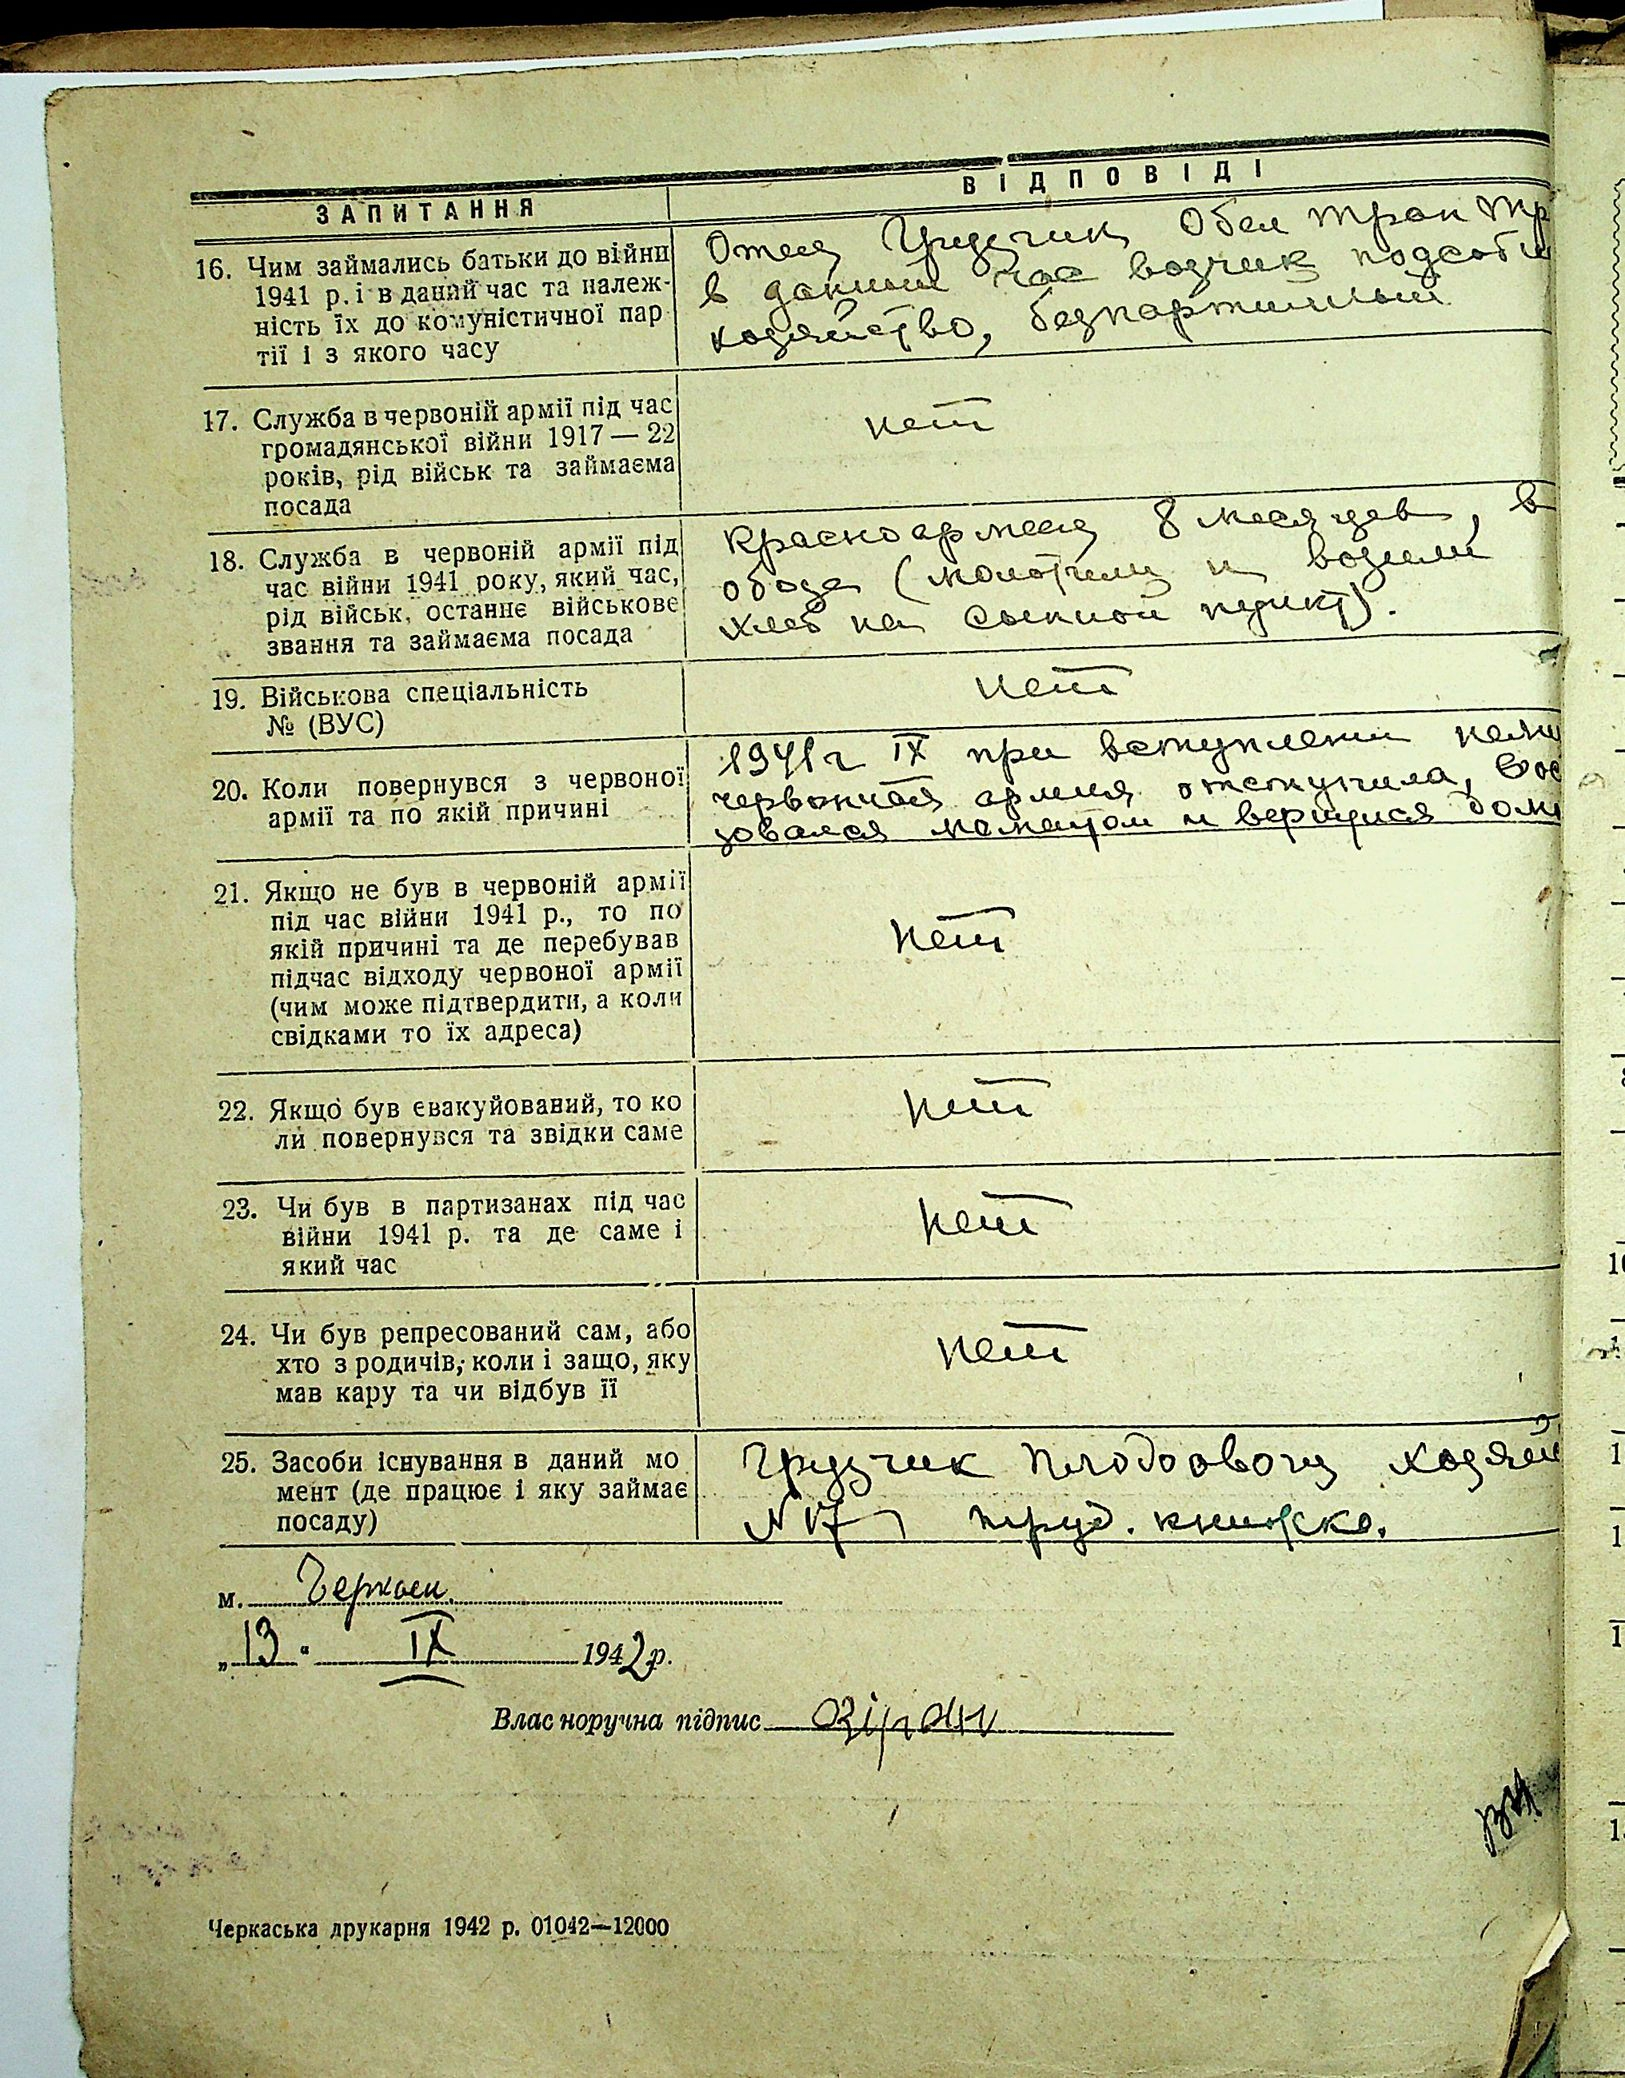 ЗАПИТАННЯ
ВІДПОВІДІ
16. Чим займались батьки до війни
1941 р. і в даний час та належ-
ність їх до комуністичної пар
тії і з якого часу
Отец Грузчик Обл тран тр
в даний час возчик подсобн
хозяйство, безпартийный
17. Служба в червоній армії під час
громадянської війни 1917 — 22
років, рід військ та займаєма
посада
нет
18. Служба в червоній армії під
час війни 1941 року, який час,
рід військ, останнє військове
звання та займаєма посада
Красноармеец 8 месяцев, в
обозе (молотили и возили
хлеб на сыпной пункт).
19. Військова спеціальність
№ (ВУС)
нет
20. Коли повернувся з червоної
армії та по якій причині
1941 г IX при вступлении неме
армия отступила, вос
зовался моментом и вернулся дом
21. Якщо не був в червоній армії
під час війни 1941 р., то по
якій причині та де перебував
підчас відходу червоної армії
(чим може підтвердити, а коли
свідками то їх адреса)
нет
22. Якщо був евакуйований, то ко
ли повернувся та звідки саме
нет
23. Чи був в партизанах під час
війни 1941 р. та де саме і
який час
нет
24. Чи був репресований сам, або
хто з родичів, коли і защо, яку
мав кару та чи відбув її
нет
25. Засоби існування в даний мо
мент (де працює і яку займає
посаду)
Грузчик хозяй
N 17 труд. книжка.
м. Черкаси.
„13" IX 1942 р.
Власноручна підпис
Черкаська друкарня 1942 р. 01042—12000